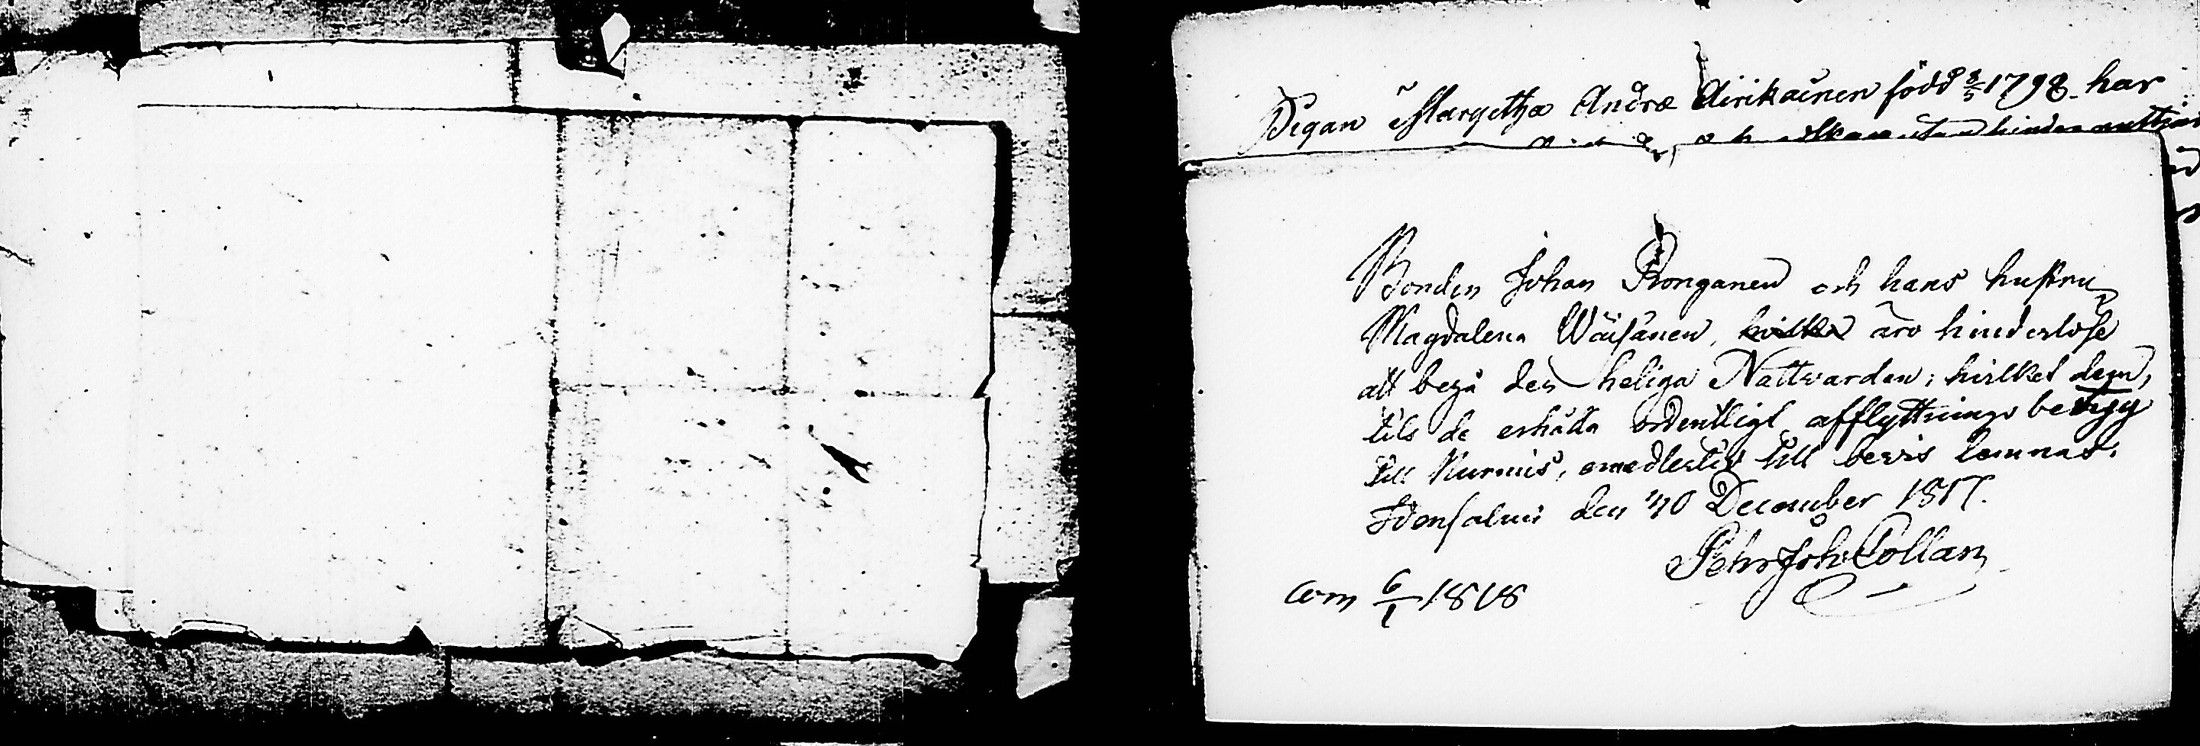 Pigan Margetha Andræ Airikainen född 3/5 1798 har
Bonden Johan Ronganen och hans hustru
Magdalena Wäisänen, hvilka äro hinderlöse
att begå den heliga Nattvarden; hvilket dem,
tils de erhålla ordentligt afflyttnings betyg
till Kurmis, emedlertid till bevis lemnas.
Idensalmi den 40 December 1817.
Pehr Joh Collan
com 6/1 1818